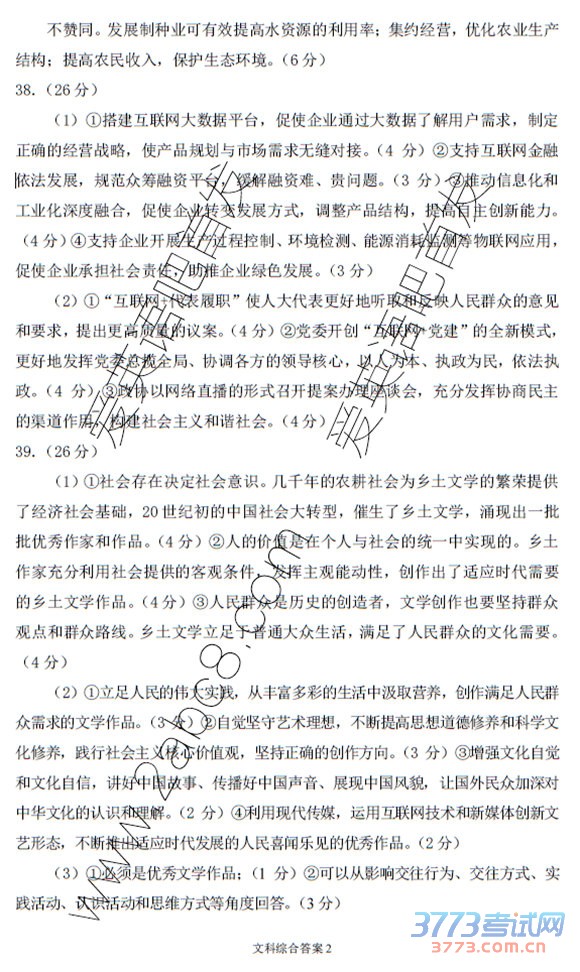 不赞同。发展制种业可有效提高水资源的利用率；集约经营，优化农业生产
结构；提高农民收入，保护生态环境。（6分）
38.（26分）
（1）①搭建互联网大数据平台，促使企业通过大数据了解用户需求，制定
正确的经营战略，使产品规划与市场需求无缝对接。（4 分）②支持互联网金融
依法发展，规范众筹融资平台，缓解融资难、贵问题。（3 分）③推动信息化和
工业化深度融合，促使企业转变发展方式，调整产品结构，提高自主创新能力。
（4分）④支持企业开展生产过程控制、环境检测、能源消耗监测等物联网应用，
促使企业承担社会责任，助推企业绿色发展。（3分）
（2）①“互联网+代表履职”使人大代表更好地听取和反映人民群众的意见
和要求，提出更高质量的议案。（4分）②党委开创“互联网+党建”的全新模式，
更好地发挥党委总揽全局、协调各方的领导核心，以人为本、执政为民，依法执
政。（4 分）③政协以网络直播的形式召开提案办理座谈会，充分发挥协商民主
的渠道作用，构建社会主义和谐社会。（4分）
39.（26分）
（1）①社会存在决定社会意识。几千年的农耕社会为乡土文学的繁荣提供
了经济社会基础，20世纪初的中国社会大转型，催生了乡土文学，涌现出一批
批优秀作家和作品。（4分）②人的价值是在个人与社会的统一中实现的。乡土
作家充分利用社会提供的客观条件，发挥主观能动性，创作出了适应时代需要
的乡土文学作品。（4分）③人民群众是历史的创造者，文学创作也要坚持群众
观点和群众路线。乡土文学立足于普通大众生活，满足了人民群众的文化需要。
（4分）
（2）①立足人民的伟大实践，从丰富多彩的生活中汲取营养，创作满足人民群
众需求的文学作品。（3 分）②自觉坚守艺术理想，不断提高思想道德修养和科学文
化修养，践行社会主义核心价值观，坚持正确的创作方向。（3 分）③增强文化自觉
和文化自信，讲好中国故事、传播好中国声音、展现中国风貌，让国外民众加深对
中华文化的认识和理解。（2 分）④利用现代传媒，运用互联网技术和新媒体创新文
艺形态，不断推出适应时代发展的人民喜闻乐见的优秀作品。（2分）
（3）①必须是优秀文学作品；（1 分）②可以从影响交往行为、交往方式、实
践活动、认识活动和思维方式等角度回答。（3分）
文科综合答案 2
爱英语吧首发
爱英语吧首发
www.2abc8.com
3773考试网
3773.com.cn